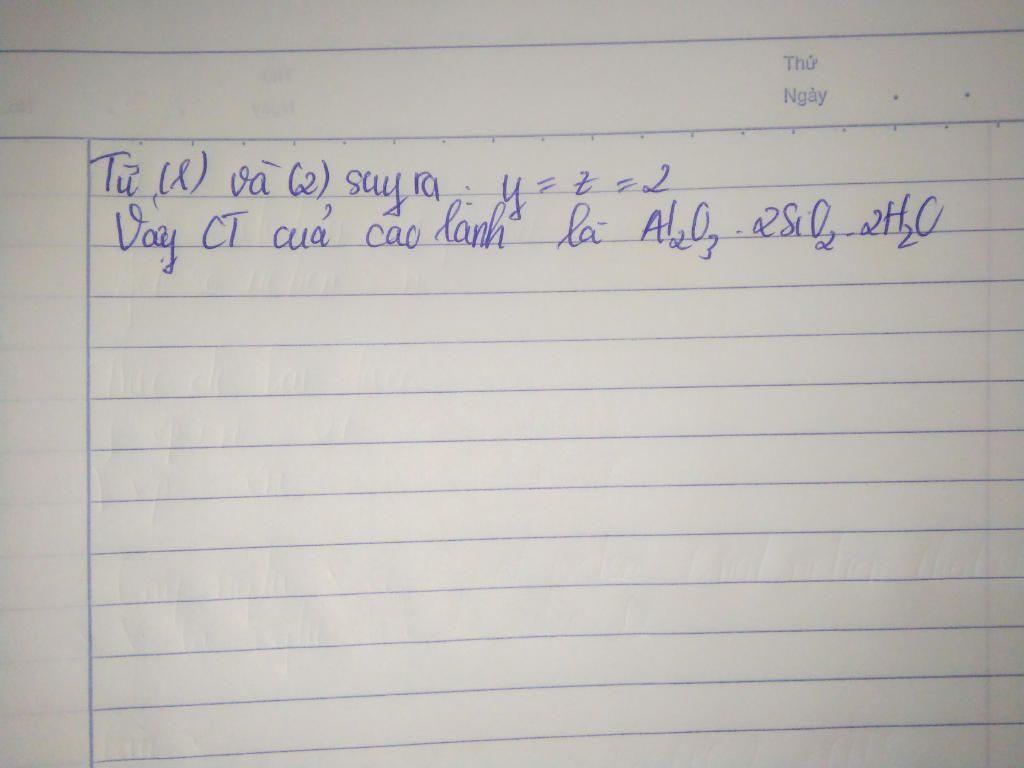 Thứ
Ngày
Từ (1) và (2) suy ra : y = z = 2
Vậy CT của cao lanh là Al₂O₃ . 2SiO₂ . 2H₂O